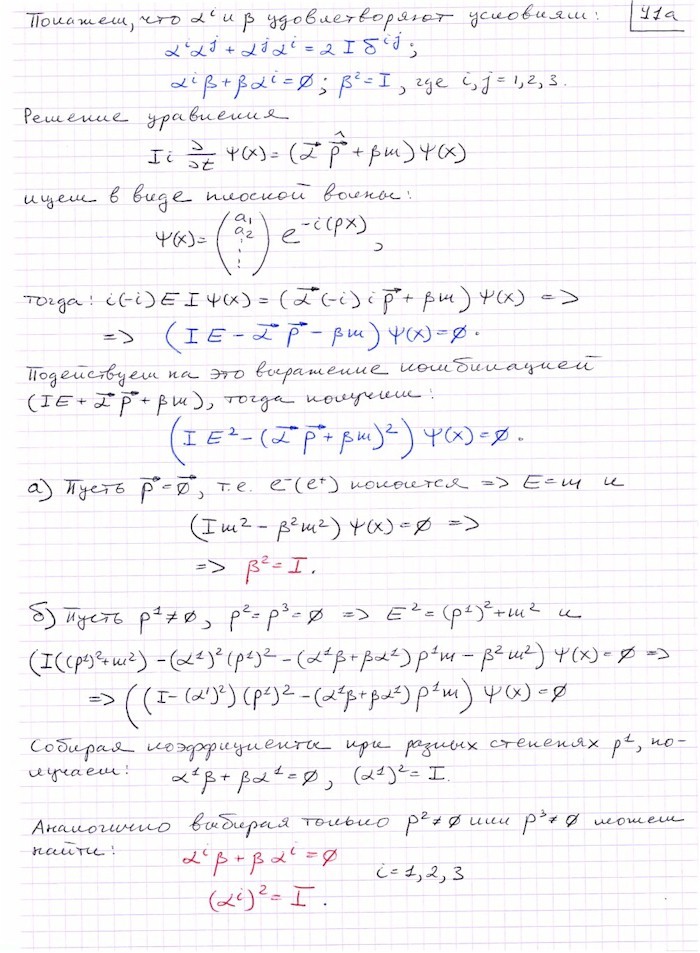 Покажем, что αⁱ и β удовлетворяют условиям: 11а
αⁱαʲ + αʲαⁱ = 2 I δⁱʲ;
αⁱβ + βαⁱ = 0; β² = I, где i, j = 1, 2, 3.
Решение уравнения
I i ∂/∂t Ψ(x) = (α⃗ p̂⃗ + βm) Ψ(x)
ищем в виде плоской волны:
Ψ(x) = (a₁ a₂ ⋮) e^{-i(px)},
тогда: i(-i) E I Ψ(x) = (α⃗ (-i) i p⃗ + βm) Ψ(x) =>
=> (I E - α⃗ p⃗ - βm) Ψ(x) = 0.
Подействуем на это выражение комбинацией
(IE + α⃗ p⃗ + βm), тогда получим:
(I E² - (α⃗ p⃗ + βm)²) Ψ(x) = 0.
а) Пусть p⃗ = 0⃗, т.е. e⁻(e⁺) покоится => E = m и
(I m² - β²m²) Ψ(x) = 0 =>
=> β² = I.
б) Пусть p¹ ≠ 0, p² = p³ = 0 => E² = (p¹)² + m² и
(I((p¹)² + m²) - (α¹)²(p¹)² - (α¹β + βα¹) p¹m - β²m²) Ψ(x) = 0 =>
=> ((I - (α¹)²)(p¹)² - (α¹β + βα¹) p¹m) Ψ(x) = 0
Собирая коэффициенты при разных степенях p¹, по-
лучаем: α¹β + βα¹ = 0, (α¹)² = I.
Аналогично выбирая только p² ≠ 0 или p³ ≠ 0 можем
найти: αⁱβ + βαⁱ = 0
i = 1, 2, 3
(αⁱ)² = I.